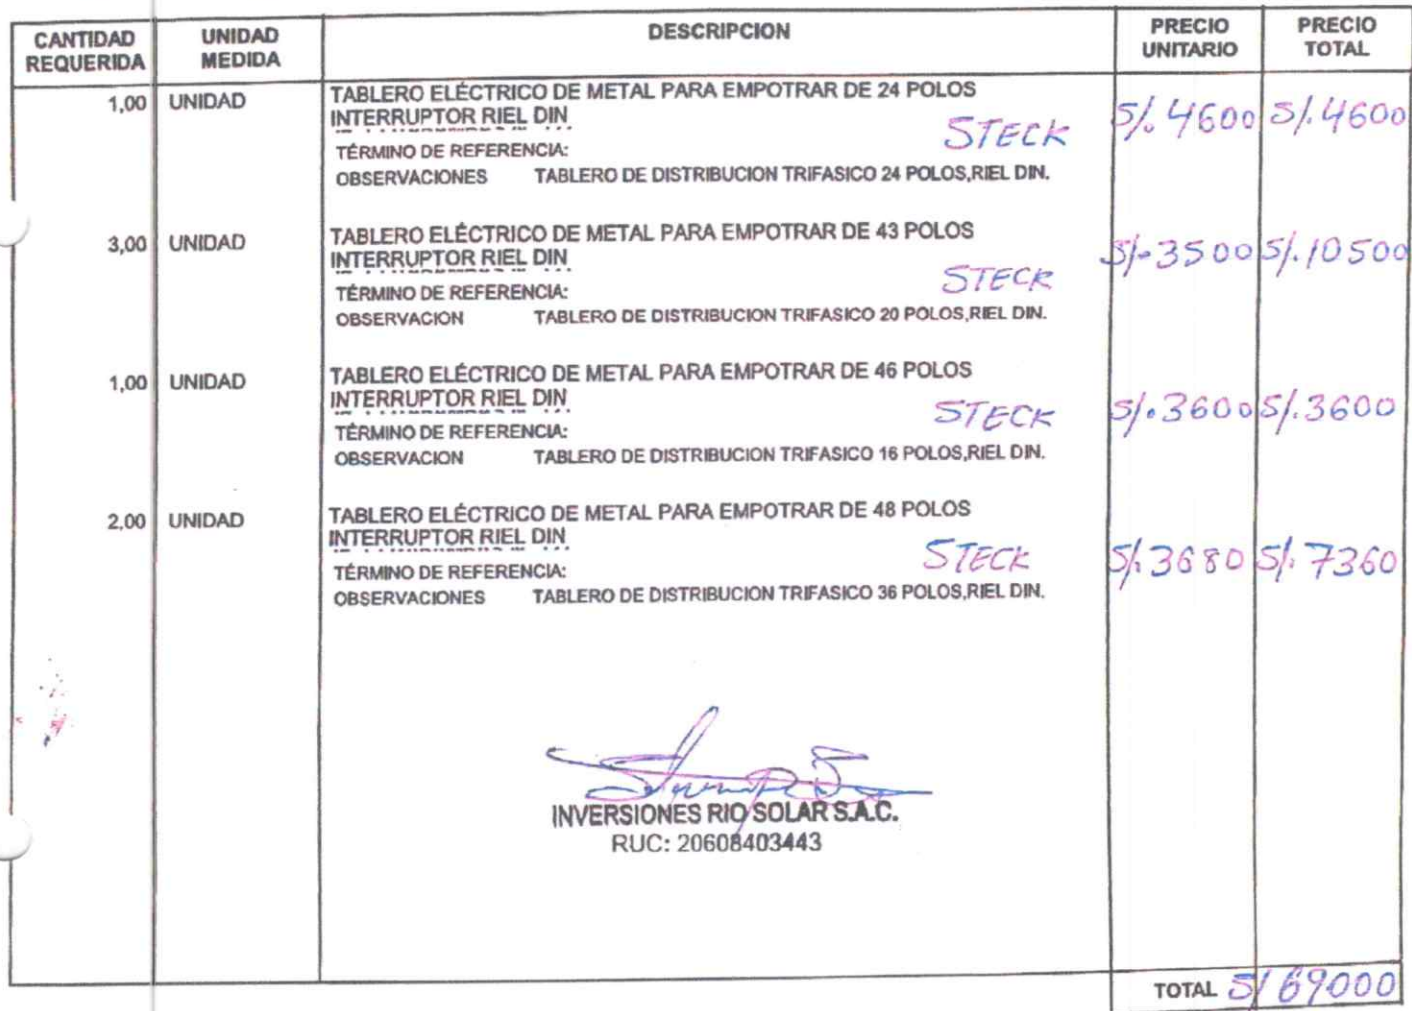 CANTIDAD REQUERIDA UNIDAD MEDIDA DESCRIPCION PRECIO UNITARIO PRECIO TOTAL
1,00 UNIDAD TABLERO ELÉCTRICO DE METAL PARA EMPOTRAR DE 24 POLOS
INTERRUPTOR RIEL DIN
STECK S/. 4600 S/. 4600
TÉRMINO DE REFERENCIA:
OBSERVACIONES TABLERO DE DISTRIBUCION TRIFASICO 24 POLOS,RIEL DIN.
3,00 UNIDAD TABLERO ELÉCTRICO DE METAL PARA EMPOTRAR DE 43 POLOS
INTERRUPTOR RIEL DIN
STECK S/. 3500 S/. 10500
TÉRMINO DE REFERENCIA:
OBSERVACION TABLERO DE DISTRIBUCION TRIFASICO 20 POLOS,RIEL DIN.
1,00 UNIDAD TABLERO ELÉCTRICO DE METAL PARA EMPOTRAR DE 46 POLOS
INTERRUPTOR RIEL DIN
STECK S/. 3600 S/. 3600
TÉRMINO DE REFERENCIA:
OBSERVACION TABLERO DE DISTRIBUCION TRIFASICO 16 POLOS,RIEL DIN.
2,00 UNIDAD TABLERO ELÉCTRICO DE METAL PARA EMPOTRAR DE 48 POLOS
INTERRUPTOR RIEL DIN
STECK S/. 3680 S/. 7360
TÉRMINO DE REFERENCIA:
OBSERVACIONES TABLERO DE DISTRIBUCION TRIFASICO 36 POLOS,RIEL DIN.
INVERSIONES RIO SOLAR S.A.C.
RUC: 20608403443
TOTAL S/ 69000